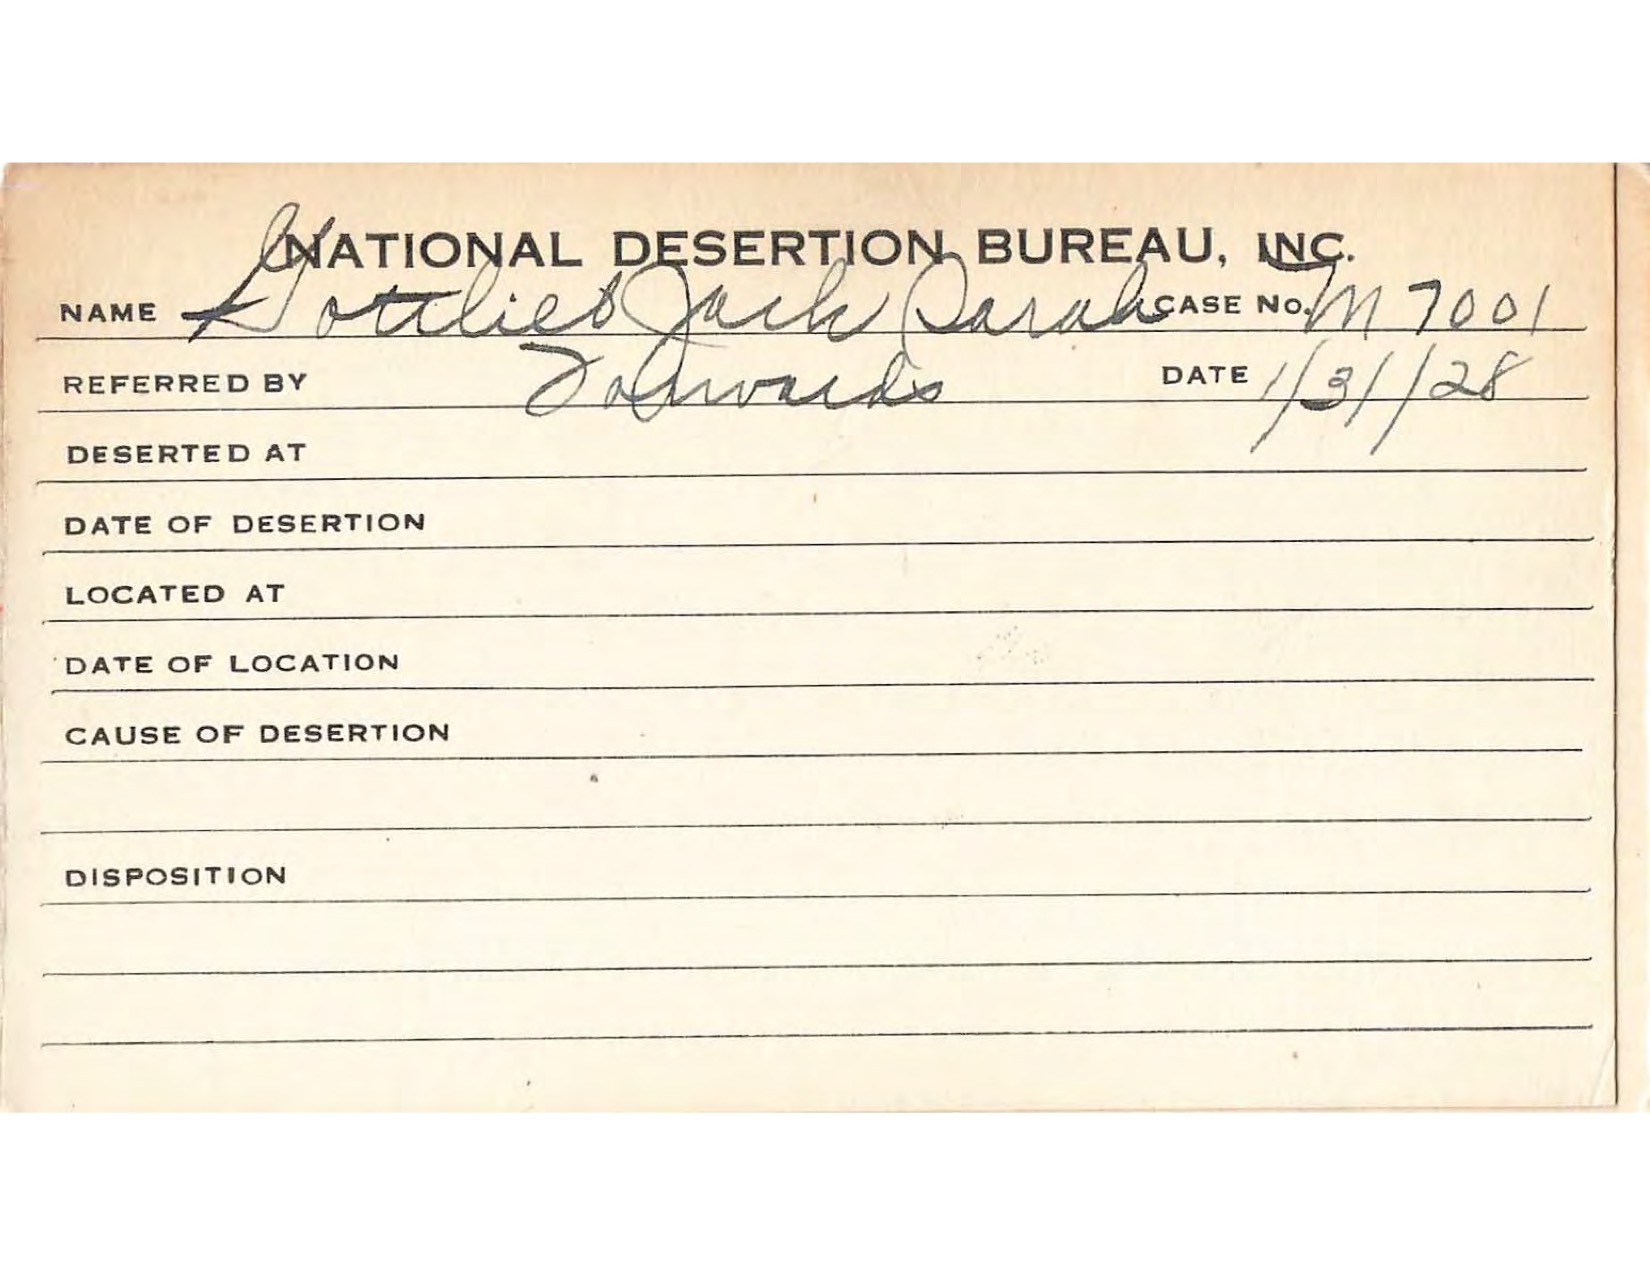 NATIONAL DESERTION BUREAU, INC.
NAME Gottlieb Jack Sarah CASE No. M 7001
REFERRED BY DATE 1/31/28
DESERTED AT
DATE OF DESERTION
LOCATED AT
DATE OF LOCATION
CAUSE OF DESERTION
DISPOSITION